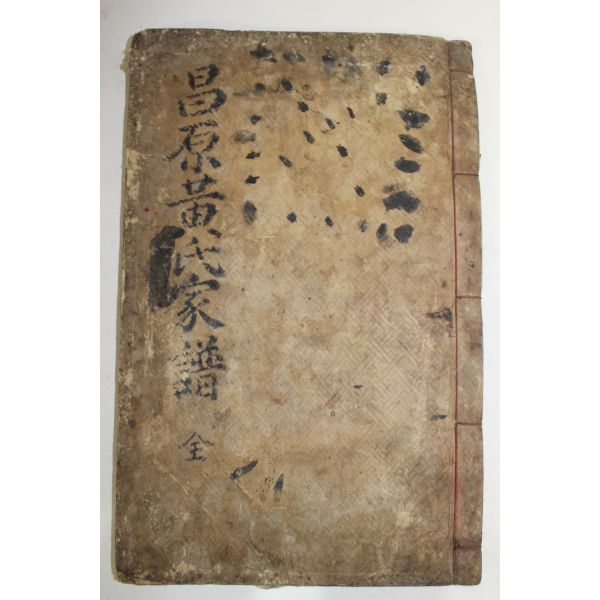 昌原黃氏家譜 全